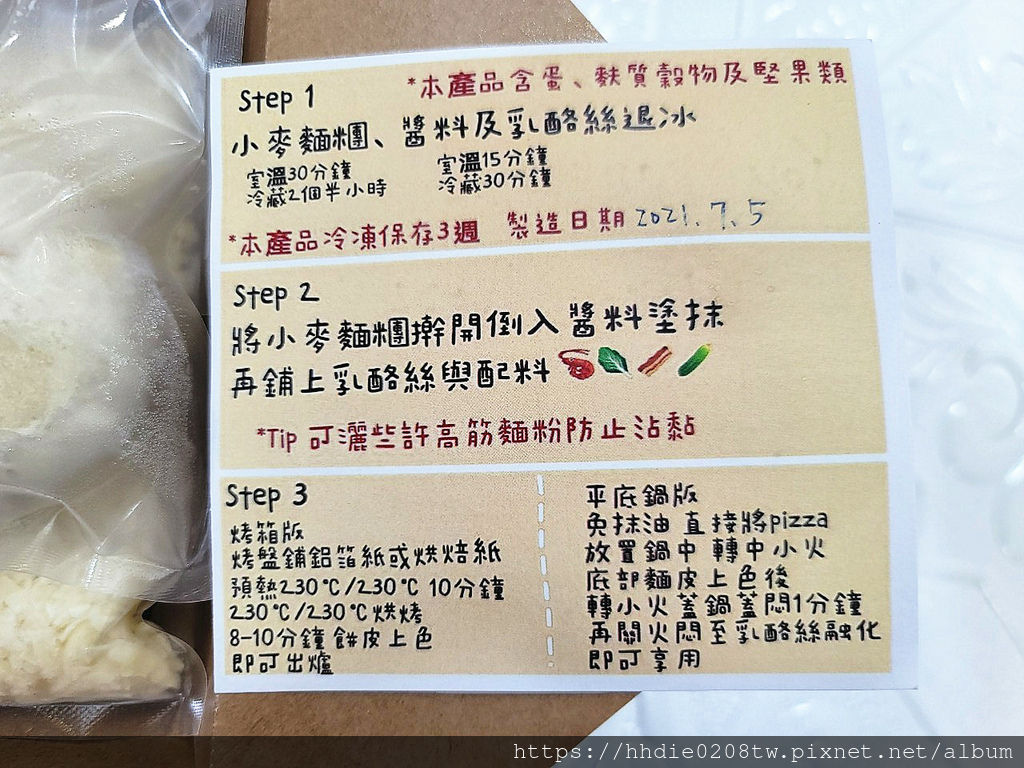 Step 1
*本產品含蛋、麩質穀物及堅果類
小麥麵糰、醬料及乳酪絲退冰
室溫30分鐘 室溫15分鐘
冷藏2個半小時 冷藏30分鐘
*本產品冷凍保存3週 製造日期 2021.7.5
Step 2
將小麥麵糰擀開倒入醬料塗抹
再鋪上乳酪絲與配料
*Tip 可灑些許高筋麵粉防止沾黏
Step 3
烤箱版
烤盤鋪鋁箔紙或烘焙紙
預熱230℃/230℃ 10分鐘
230℃/230℃烘烤
8-10分鐘 餅皮上色
即可出爐
平底鍋版
免抹油 直接將pizza
放置鍋中 轉中小火
底部麵皮上色後
轉小火蓋鍋蓋悶1分鐘
再關火悶至乳酪絲融化
即可享用
https://hhdie0208tw.pixnet.net/album